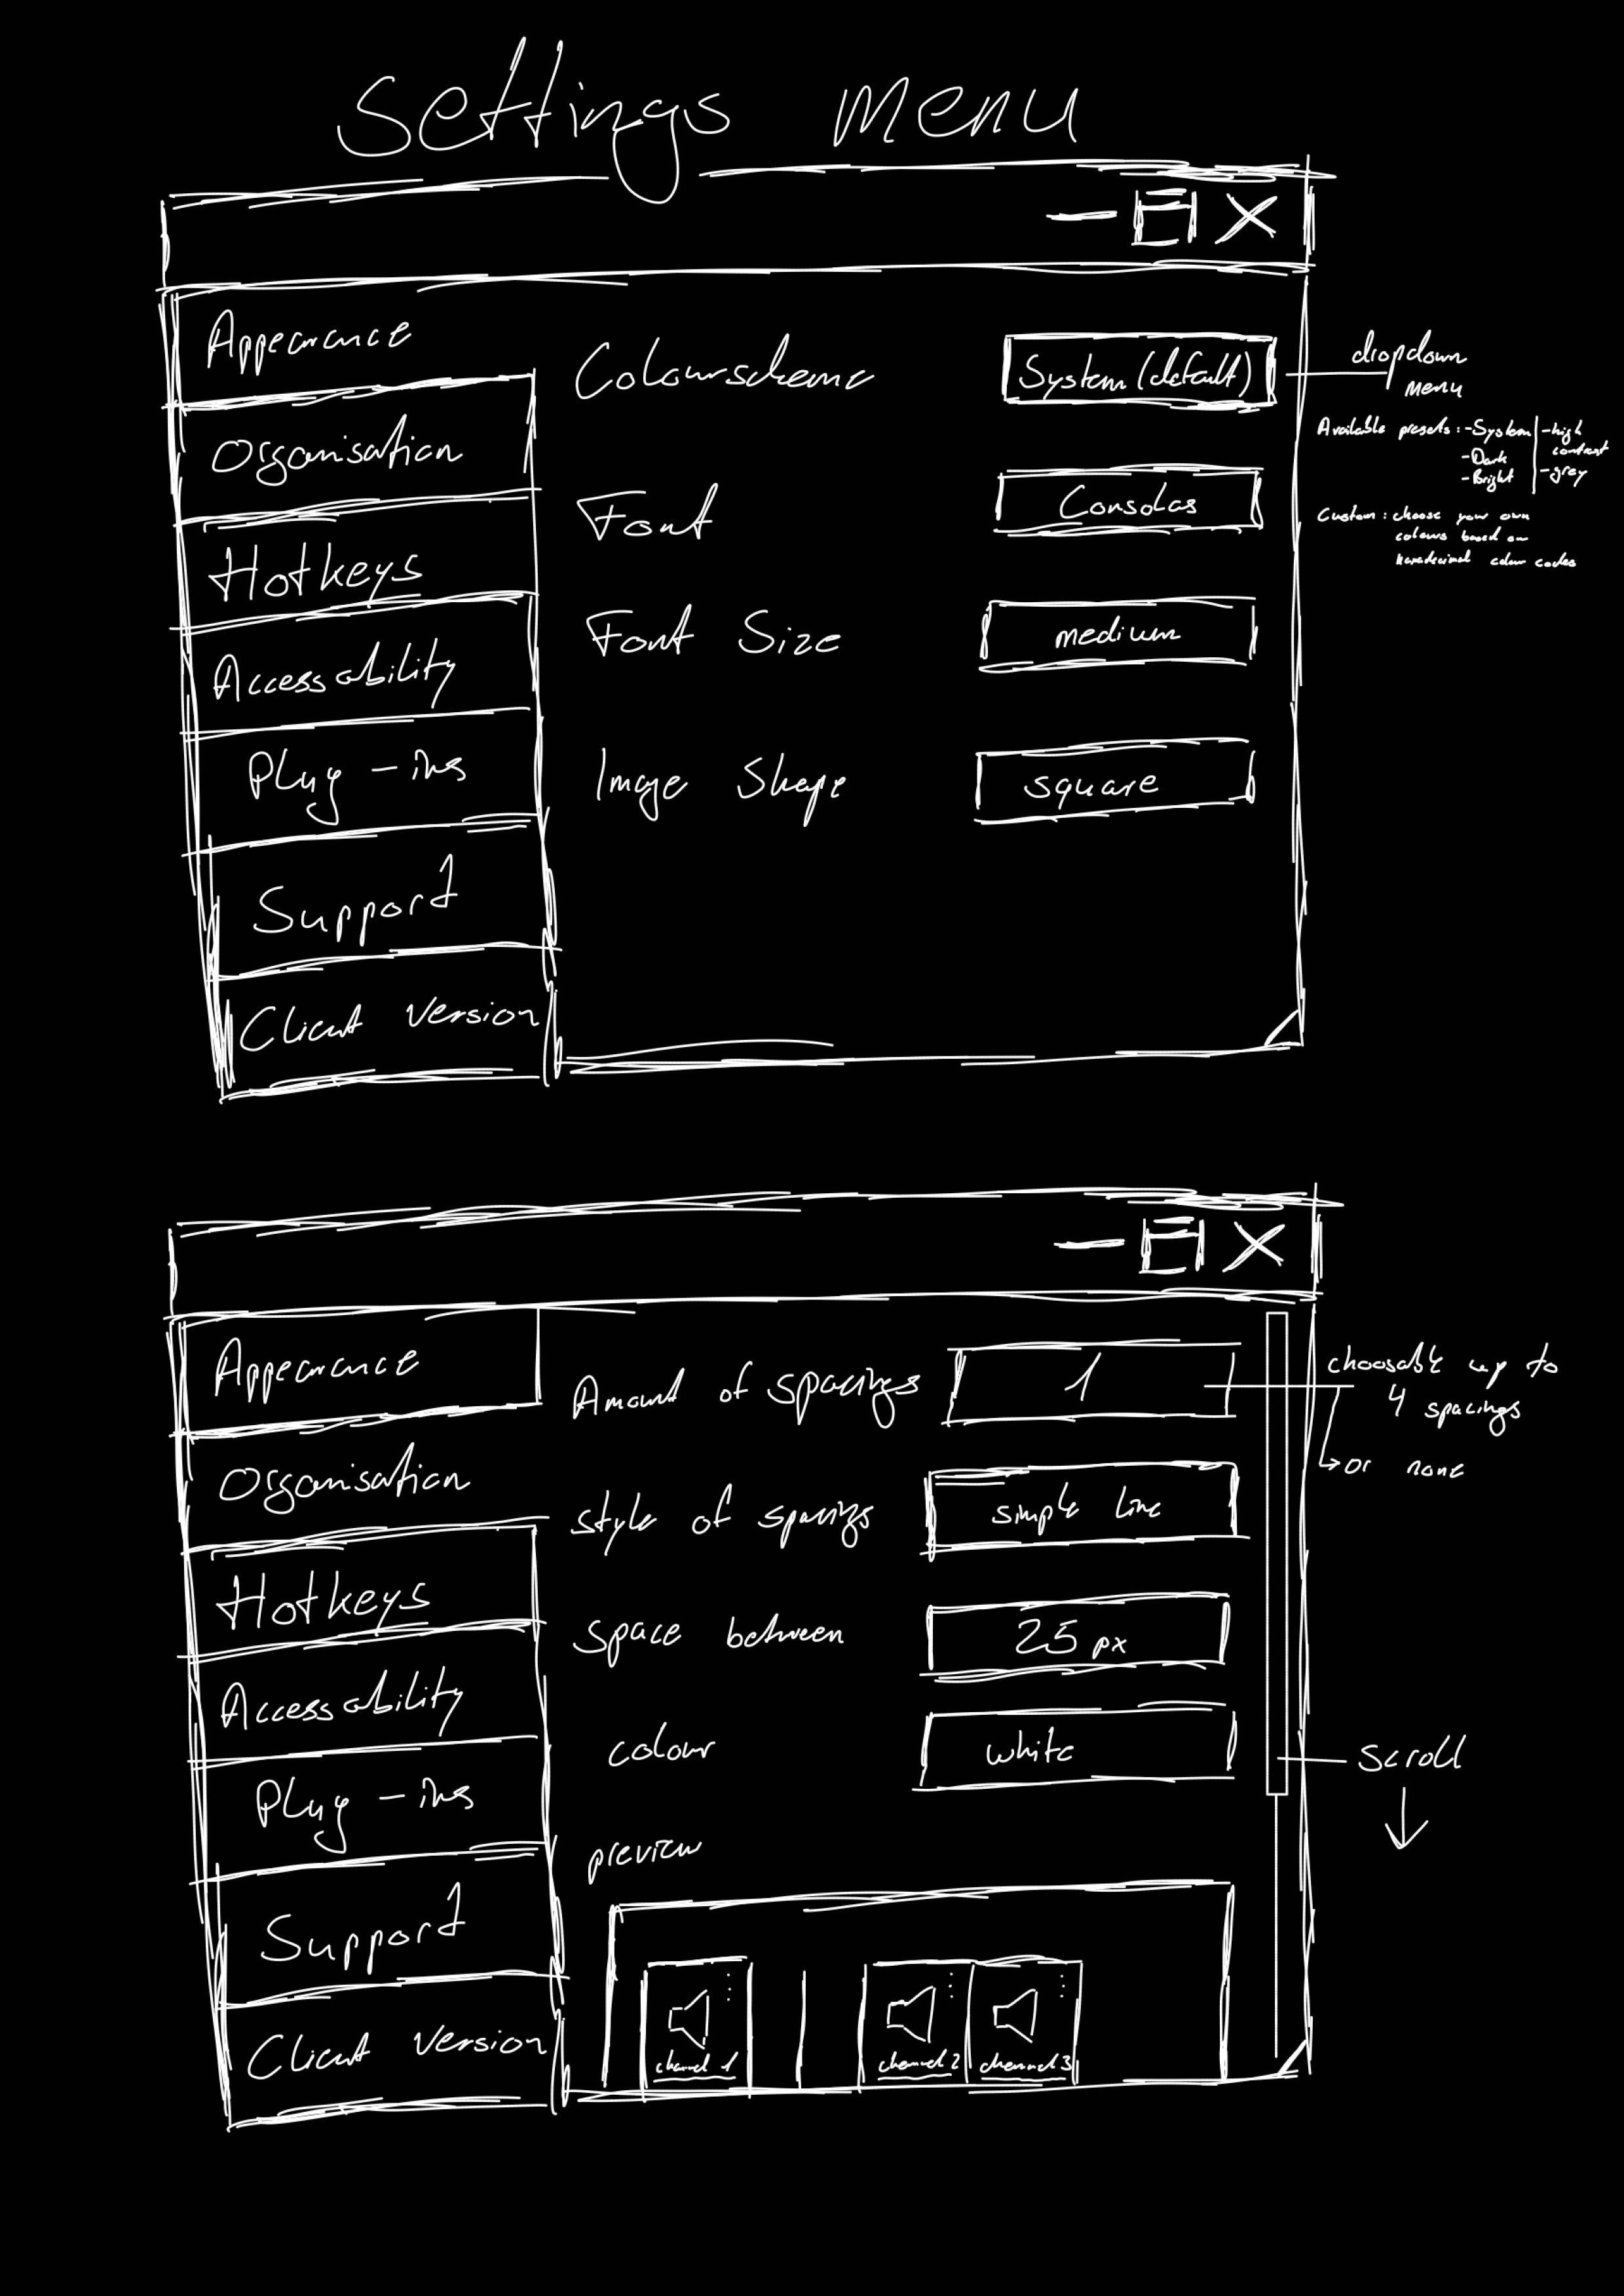 Settings menu
Appearance
Organisation
Hotkeys
Accessability
Plug-ins
Support
Client Version
Colourscheme
System (default)
Font
Consolas
Font Size
medium
Image Shape
square
dropdown
menu
Available presets: -System -high
contrast
-Dark
-Bright -grey
Custom: choose your own
colours based on
hexadecimal colour codes
Appearance
Organisation
Hotkeys
Accessability
Plug-ins
Support
Client Version
Amount of spacings
1
style of spacings
simple line
space between
25 px
colour
white
preview
channel 1
channel 2
channel 3
choosable up to
4 spacings
or none
scroll